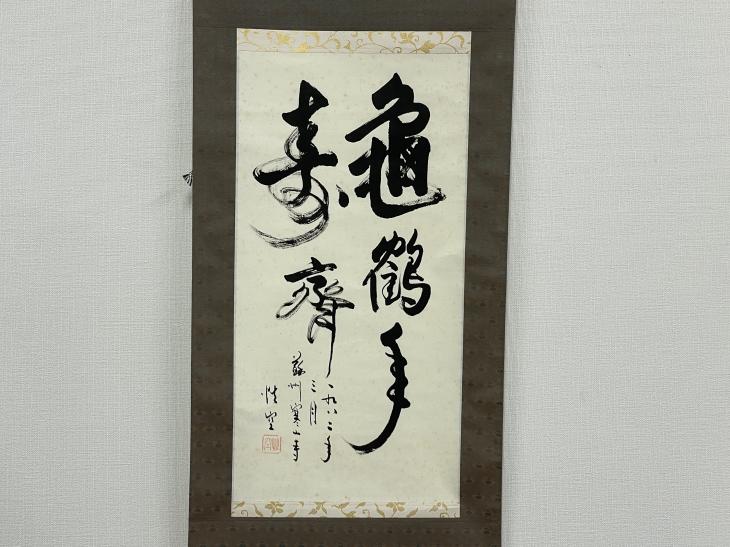 龜鶴年
壽齊
一九八二年
三月
蘇州寒山寺
性空